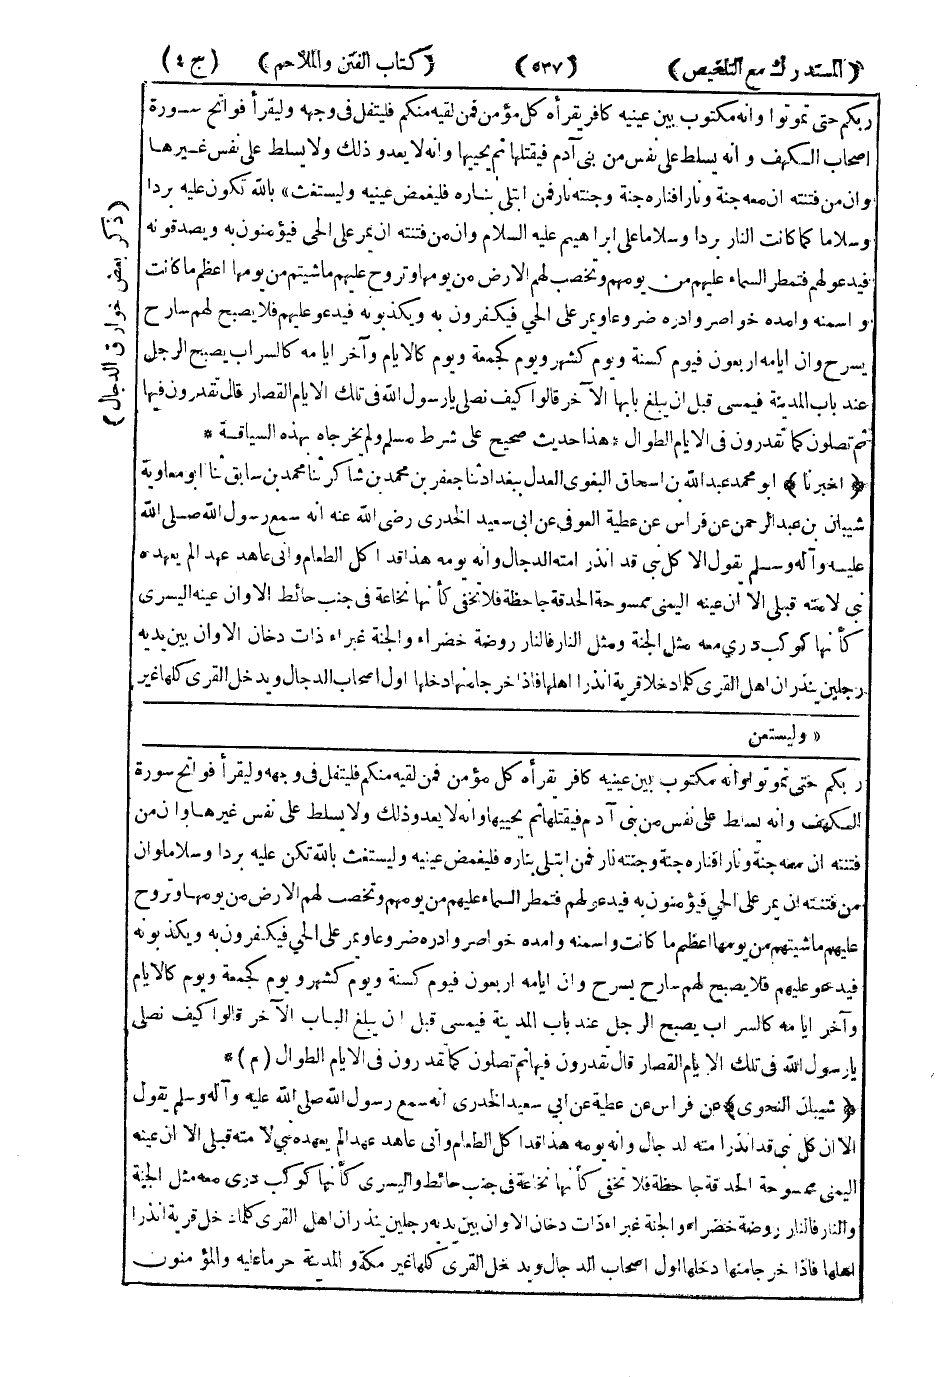 ﴿المستدرك مع التلخيص﴾ (٥٣٧) ﴿كتاب الفتن والملاحم﴾ (ج ٤)
ربكم حتى تموتوا وانه مكتوب بين عينيه كافر يقرأه كل مؤمن فمن لقيه منكم فليتفل فى وجهه وليقرأ فواتح سورة
اصحاب الكهف و أنه يسلط على نفس من بنى آدم فيقتلها ثم يحييها وانه لا يعدو ذلك ولا يسلط على نفس غيرها
وان من فتنته ان معه جنة ونارا فناره جنة وجنته نار فمن ابتلى بناره فليغمض عينيه وليستغث» بالله تكون عليه بردا
وسلاما كما كانت النار بردا وسلاما على ابراهيم عليه السلام وان من فتنته ان يمر على الحي فيؤمنون به ويصدقونه
فيدعو لهم فتمطر السماء عليهم من يومهم وتخصب لهم الارض من يومها وتروح عليهم ماشيتهم من يومها اعظم ما كانت
و اسمنه وامده خواصر وادره ضروعا ويمر على الحي فيكفرون به ويكذبونه فيدعو عليهم فلا يصبح لهم سارح
يسرح وان ايامه اربعون فيوم كسنة ويوم كشهر ويوم كجمعة ويوم كالايام وآخر ايامه كالسراب يصبح الرجل
عند باب المدينة فيمسى قبل ان يبلغ بابها الآخر قالوا كيف نصلى يارسول الله فى تلك الايام القصار قال تقدرون فيها
ثم تصلون كما تقدرون فى الايام الطوال * هذا حديث صحيح على شرط مسلم ولم يخرجاه بهذه السياقة *
﴿اخبرنا﴾ ابو محمد عبد الله بن اسحاق البغوى العدل ببغداد ثنا جعفر بن محمد بن شاكر ثنا محمد بن سابق ثنا ابو معاوية
شيبان بن عبد الرحمن عن فراس عن عطية العوفى عن ابى سعيد الخدرى رضى الله عنه انه سمع رسول الله صلى الله
عليه وآله وسلم يقول الا كل نبى قد انذر امته الدجال وانه يومه هذا قد اكل الطعام وانى عاهد عهدا لم يعهده
نبى لامته قبلى الا ان عينه اليمنى ممسوحة الحدقة جاحظة فلا تخفى كأنها نخاعة فى جنب حائط الا وان عينه اليسرى
كأنها كوكب دري معه مثل الجنة ومثل النار فالنار روضة خضراء والجنة غبراء ذات دخان الا وان بين يديه
رجلين ينذران اهل القرى كلما دخلا قرية انذرا اهلها فاذا خرجا منها دخلها اول اصحاب الدجال ويدخل القرى كلها غير
(ذكر بعض خوارق الدجال)
« وليستعن
ربكم حتى تموتوا وانه مكتوب بين عينيه كافر يقرأه كل مؤمن فمن لقيه منكم فليتفل فى وجهه وليقرأ فواتح سورة
الكهف وانه يسلط على نفس من بنى آدم فيقتلها ثم يحييها وانه لا يعدو ذلك ولا يسلط على نفس غيرها وان من
فتنته ان معه جنة ونارا فناره جنة وجنته نار فمن ابتلى بناره فليغمض عينيه وليستغث بالله تكن عليه بردا وسلاما وان
من فتنته ان يمر على الحي فيؤمنون به فيدعو لهم فتمطر السماء عليهم من يومهم وتخصب لهم الارض من يومها وتروح
عليهم ماشيتهم من يومها اعظم ما كانت واسمنه وامده خواصر وادره ضروعا ويمر على الحي فيكفرون به ويكذبونه
فيدعو عليهم فلا يصبح لهم سارح يسرح وان ايامه اربعون فيوم كسنة ويوم كشهر ويوم كجمعة ويوم كالايام
وآخر ايامه كالسراب يصبح الرجل عند باب المدينة فيمسى قبل ان يبلغ الباب الآخر قالوا كيف نصلى
يارسول الله فى تلك الايام القصار قال تقدرون فيها ثم تصلون كما تقدرون فى الايام الطوال (م) *
﴿شيبان النحوى﴾ عن فراس عن عطية عن ابي سعيد الخدرى انه سمع رسول الله صلى الله عليه وآله وسلم يقول
الا ان كل نبى قد انذر امته لدجال وانه يومه هذا قد اكل الطعام وانى عاهد عهدا لم يعهده نبي لامته قبلى الا ان عينه
اليمنى ممسوحة الحدقة جاحظة فلا تخفى كأنها نخاعة فى جنب حائط واليسرى كأنها كوكب درى معه مثل الجنة
والنار فالنار روضة خضراء والجنة غبراء ذات دخان الا وان بين يديه رجلين ينذران اهل القرى كلما دخل قرية انذرا
اهلها فاذا خرجا منها دخلها اول اصحاب الدجال ويدخل القرى كلها غير مكة والمدينة حرما عليه والمؤمنون